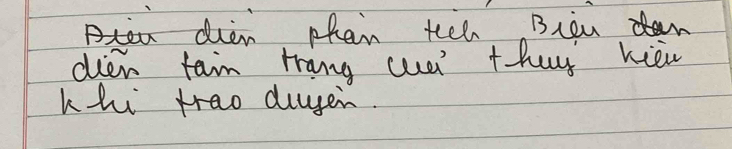 diễn phân tích Biểu
diễn tâm trạng của thuý kiều
khi trao duyên.